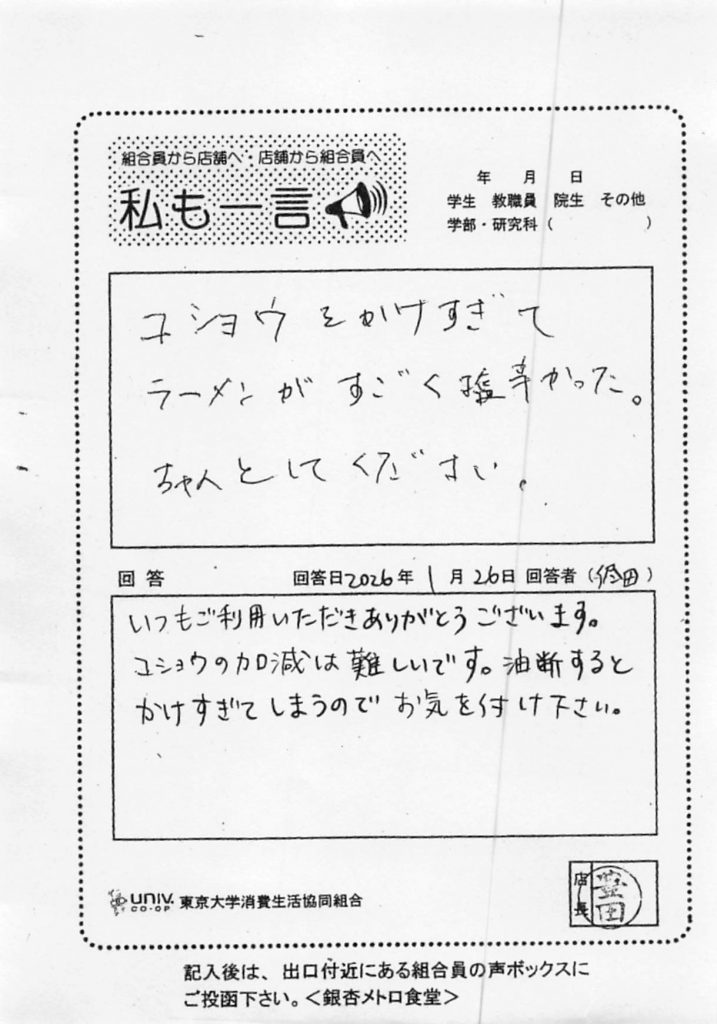 組合員から店舗へ・店舗から組合員へ
私も一言
年 月 日
学生 教職員 院生 その他
学部・研究科 ( )
コショウをかけすぎて
ラーメンがすごく塩辛かった。
ちゃんとしてください。
回答 回答日2026年1月26日 回答者 ( 田)
いつもご利用いただきありがとうございます。
コショウの加減は難しいです。油断すると
かけすぎてしまうのでお気を付け下さい。
店長 豊田
UNIV. CO-OP 東京大学消費生活協同組合
記入後は、出口付近にある組合員の声ボックスに
ご投函下さい。<銀杏メトロ食堂>